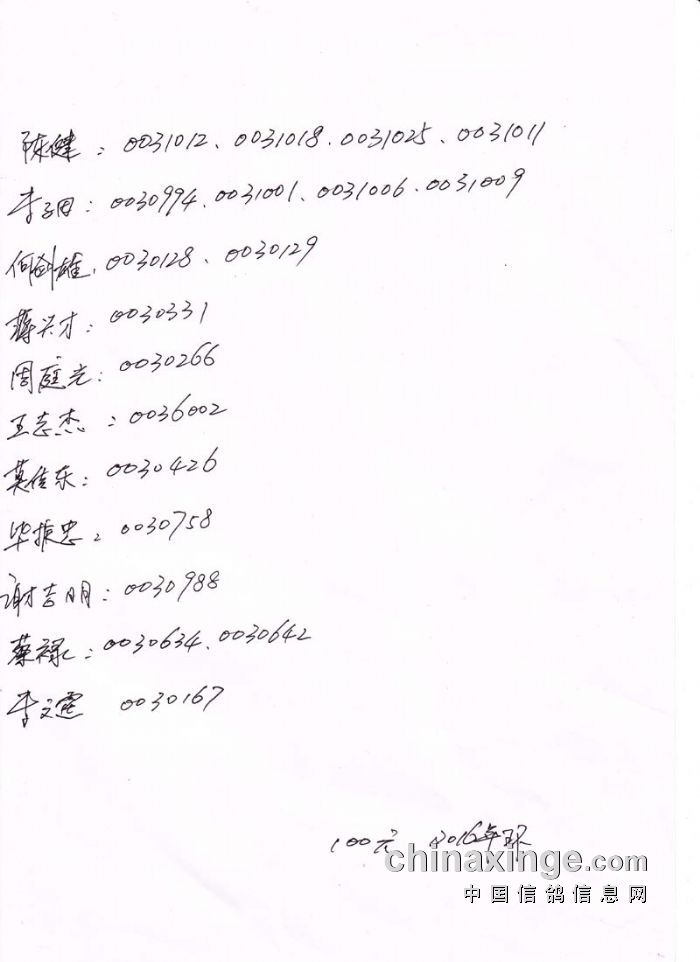 陈健：0031012、0031018.0031025、0031011
李：0030994.0031001、0031006.0031009
何剑雄.0030128、0030129
蒋兴才：0030331
周庭光：0030266
王志杰：0036002
莫佳东：0030426
毕振忠：0030758
谢吉明：0030988
蔡禄：0030634.0030642
李文 0030167
100元 2016年环
chinaxinge.com
中国信鸽信息网